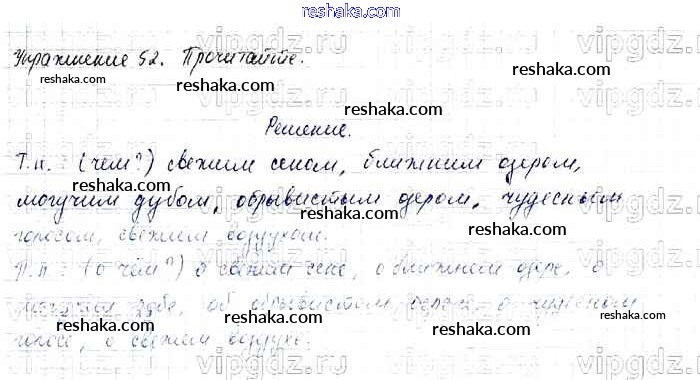 reshaka.com
Упражнение 52. Прочитайте.
reshaka.com
reshaka.com
reshaka.com
Решение.
reshaka.com
Т.п. (чем?) свежим сеном, ближним озером,
reshaka.com
могучим дубом, обрывистым озером, чудесным
reshaka.com
reshaka.com
голосом, свежим воздухом.
П.п. (о чем?) о свежем сене, о ближнем озере, о
reshaka.com
дубе, об обрывистом о чудесном
reshaka.com
reshaka.com
голосе, о свежем воздухе.
reshaka.com
vipgdz.ru